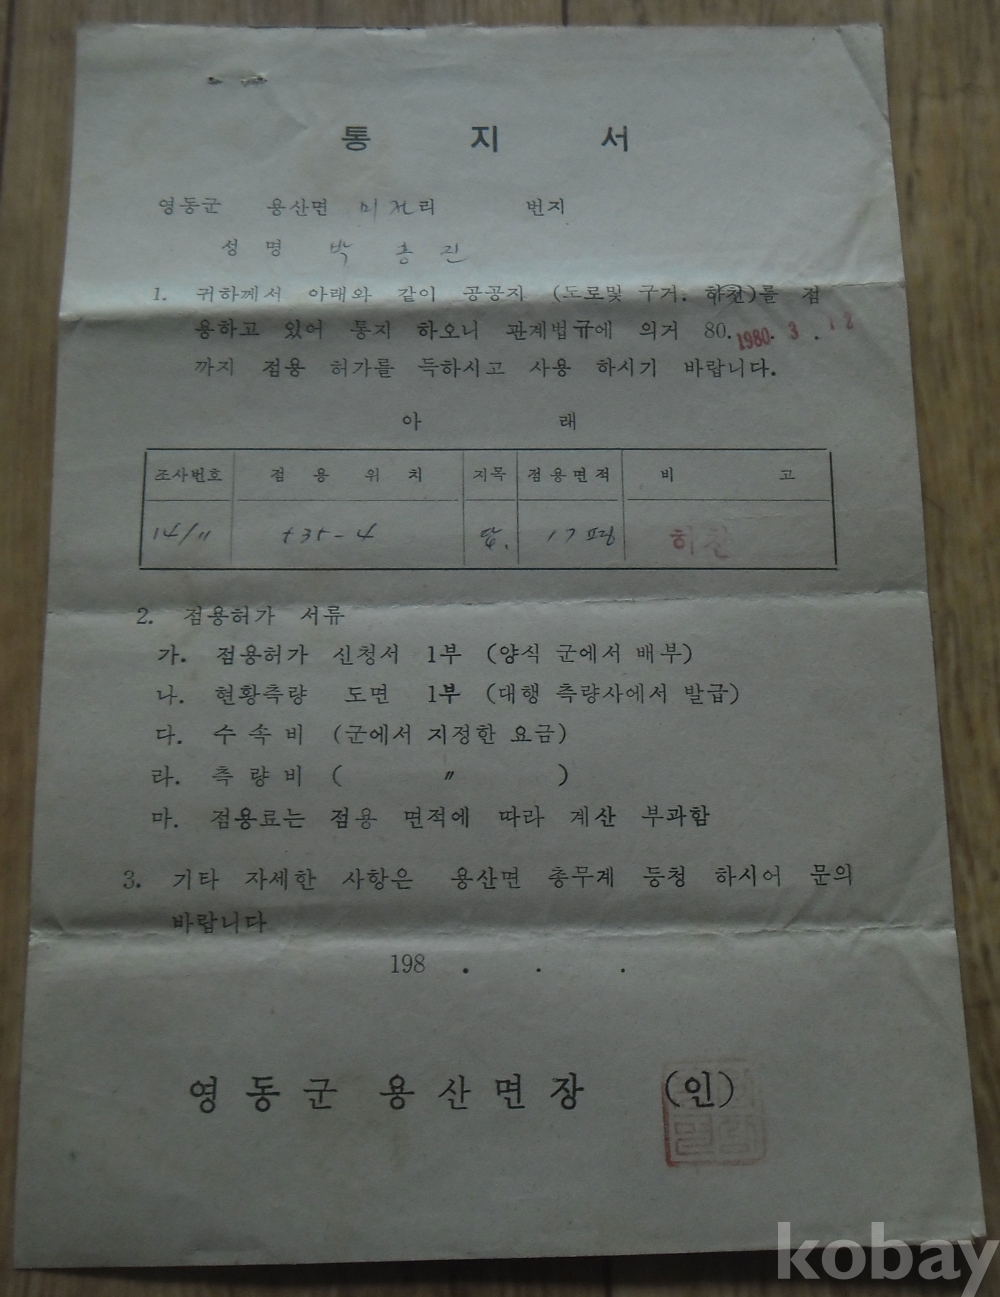 통 지 서
영동군 용산면 미전리 번지
성 명 박 흥 진
1. 귀하께서 아래와 같이 공공지 (도로및 구거. 하천)를 점
용하고 있어 통지 하오니 관계법규에 의거 80. 1980. 3. 12
까지 점용 허가를 득하시고 사용 하시기 바랍니다.
아 래
조사번호 점 용 위 치 지목 점용면적 비 고
14/〃 435-4 답. 17평 하천
2. 점용허가 서류
가. 점용허가 신청서 1부 (양식 군에서 배부)
나. 현황측량 도면 1부 (대행 측량사에서 발급)
다. 수 속 비 (군에서 지정한 요금)
라. 측 량 비 ( 〃 )
마. 점용료는 점용 면적에 따라 계산 부과함
3. 기타 자세한 사항은 용산면 총무계 등청 하시어 문의
바랍니다
198 . . .
영동군 용산면장 (인)
kobay